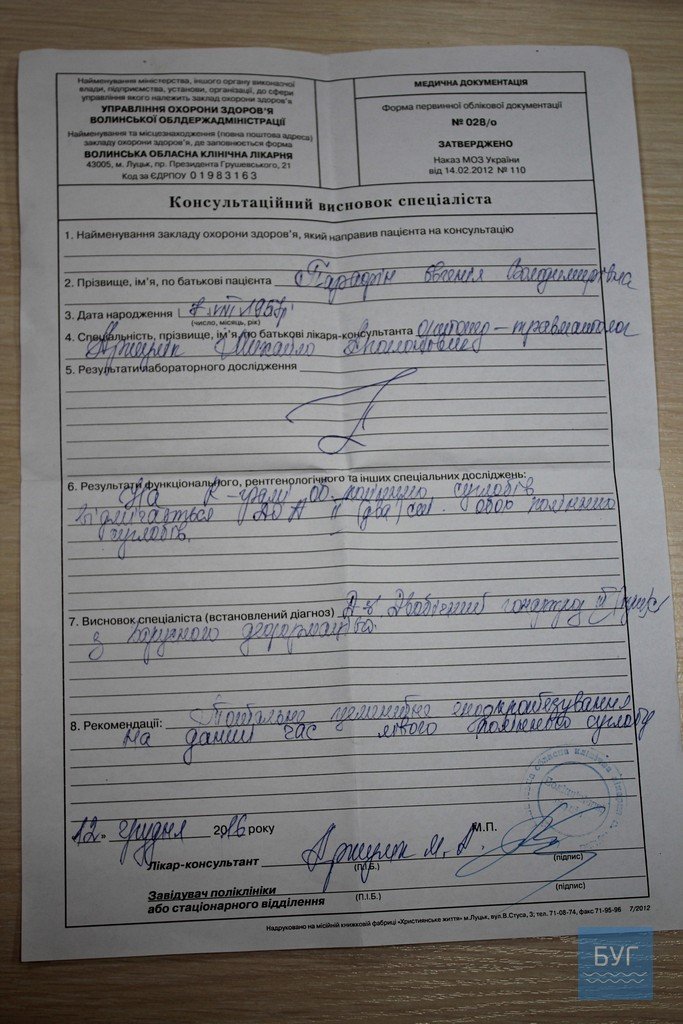 Найменування міністерства, іншого органу виконавчої
влади, підприємства, установи, організації, до сфери
управління якого належить заклад охорони здоров'я
УПРАВЛІННЯ ОХОРОНИ ЗДОРОВ'Я
ВОЛИНСЬКОЇ ОБЛДЕРЖАДМІНІСТРАЦІЇ
Найменування та місцезнаходження (повна поштова адреса)
закладу охорони здоров'я, де заповнюється форма
ВОЛИНСЬКА ОБЛАСНА КЛІНІЧНА ЛІКАРНЯ
43005, м. Луцьк, пр. Президента Грушевського, 21
Код за ЄДРПОУ 01983163
МЕДИЧНА ДОКУМЕНТАЦІЯ
Форма первинної облікової документації
№ 028/о
ЗАТВЕРДЖЕНО
Наказ МОЗ України
від 14.02.2012 № 110
Консультаційний висновок спеціаліста
1. Найменування закладу охорони здоров'я, який направив пацієнта на консультацію
2. Прізвище, ім'я, по батькові пацієнта Євгенія Володимирівна
3. Дата народження 7.VIII.1957р
(число, місяць, рік)
4. Спеціальність, прізвище, ім'я, по батькові лікаря-консультанта ортопед-травматолог
Михайло
5. Результати лабораторного дослідження
6. Результати функціонального, рентгенологічного та інших спеціальних досліджень:
На R-грамі обох колінних суглобів
відмічається ДОА II (два) ст. обох колінних
суглобів.
7. Висновок спеціаліста (встановлений діагноз) Д-з. Двобічний гонартроз
з варусною деформацією
8. Рекомендації: Тотальне цементне ендопротезування
на даний час лівого колінного суглобу
"12" грудня 2016 року
М.П.
Лікар-консультант М. А.
(П.І.Б.) (підпис)
Завідувач поліклініки
або стаціонарного відділення
(П.І.Б.) (підпис)
Надруковано на місійній книжковій фабриці «Християнське життя» м.Луцьк, вул.В.Стуса, 3; тел. 71-08-74, факс 71-95-96 7/2012
БУГ